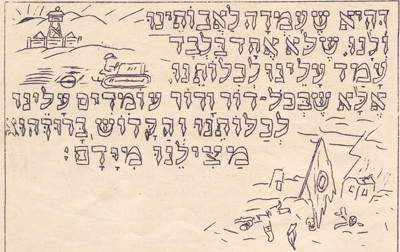 וְהִיא שֶׁעָמְדָה לַאֲבוֹתֵינוּ
וְלָנוּ. שֶׁלֹּא אֶחָד בִּלְבָד
עָמַד עָלֵינוּ לְכַלּוֹתֵנוּ
אֶלָּא שֶׁבְּכָל-דּוֹר וָדוֹר עוֹמְדִים עָלֵינוּ
לְכַלּוֹתֵנוּ וְהַקָּדוֹשׁ בָּרוּךְ הוּא
מַצִּילֵנוּ מִיָּדָם: